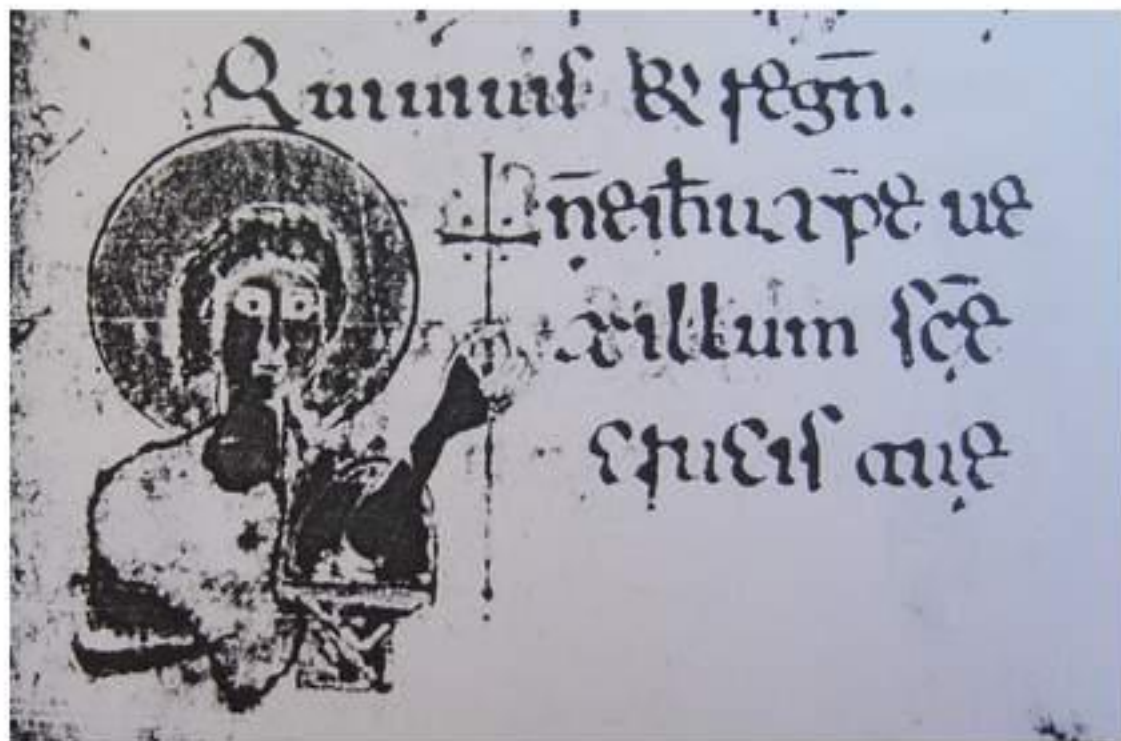 Qui uiuis & regn̄.
Dn̄e ih̄u xp̄e ue
xillum sc̄ę
crucis quę